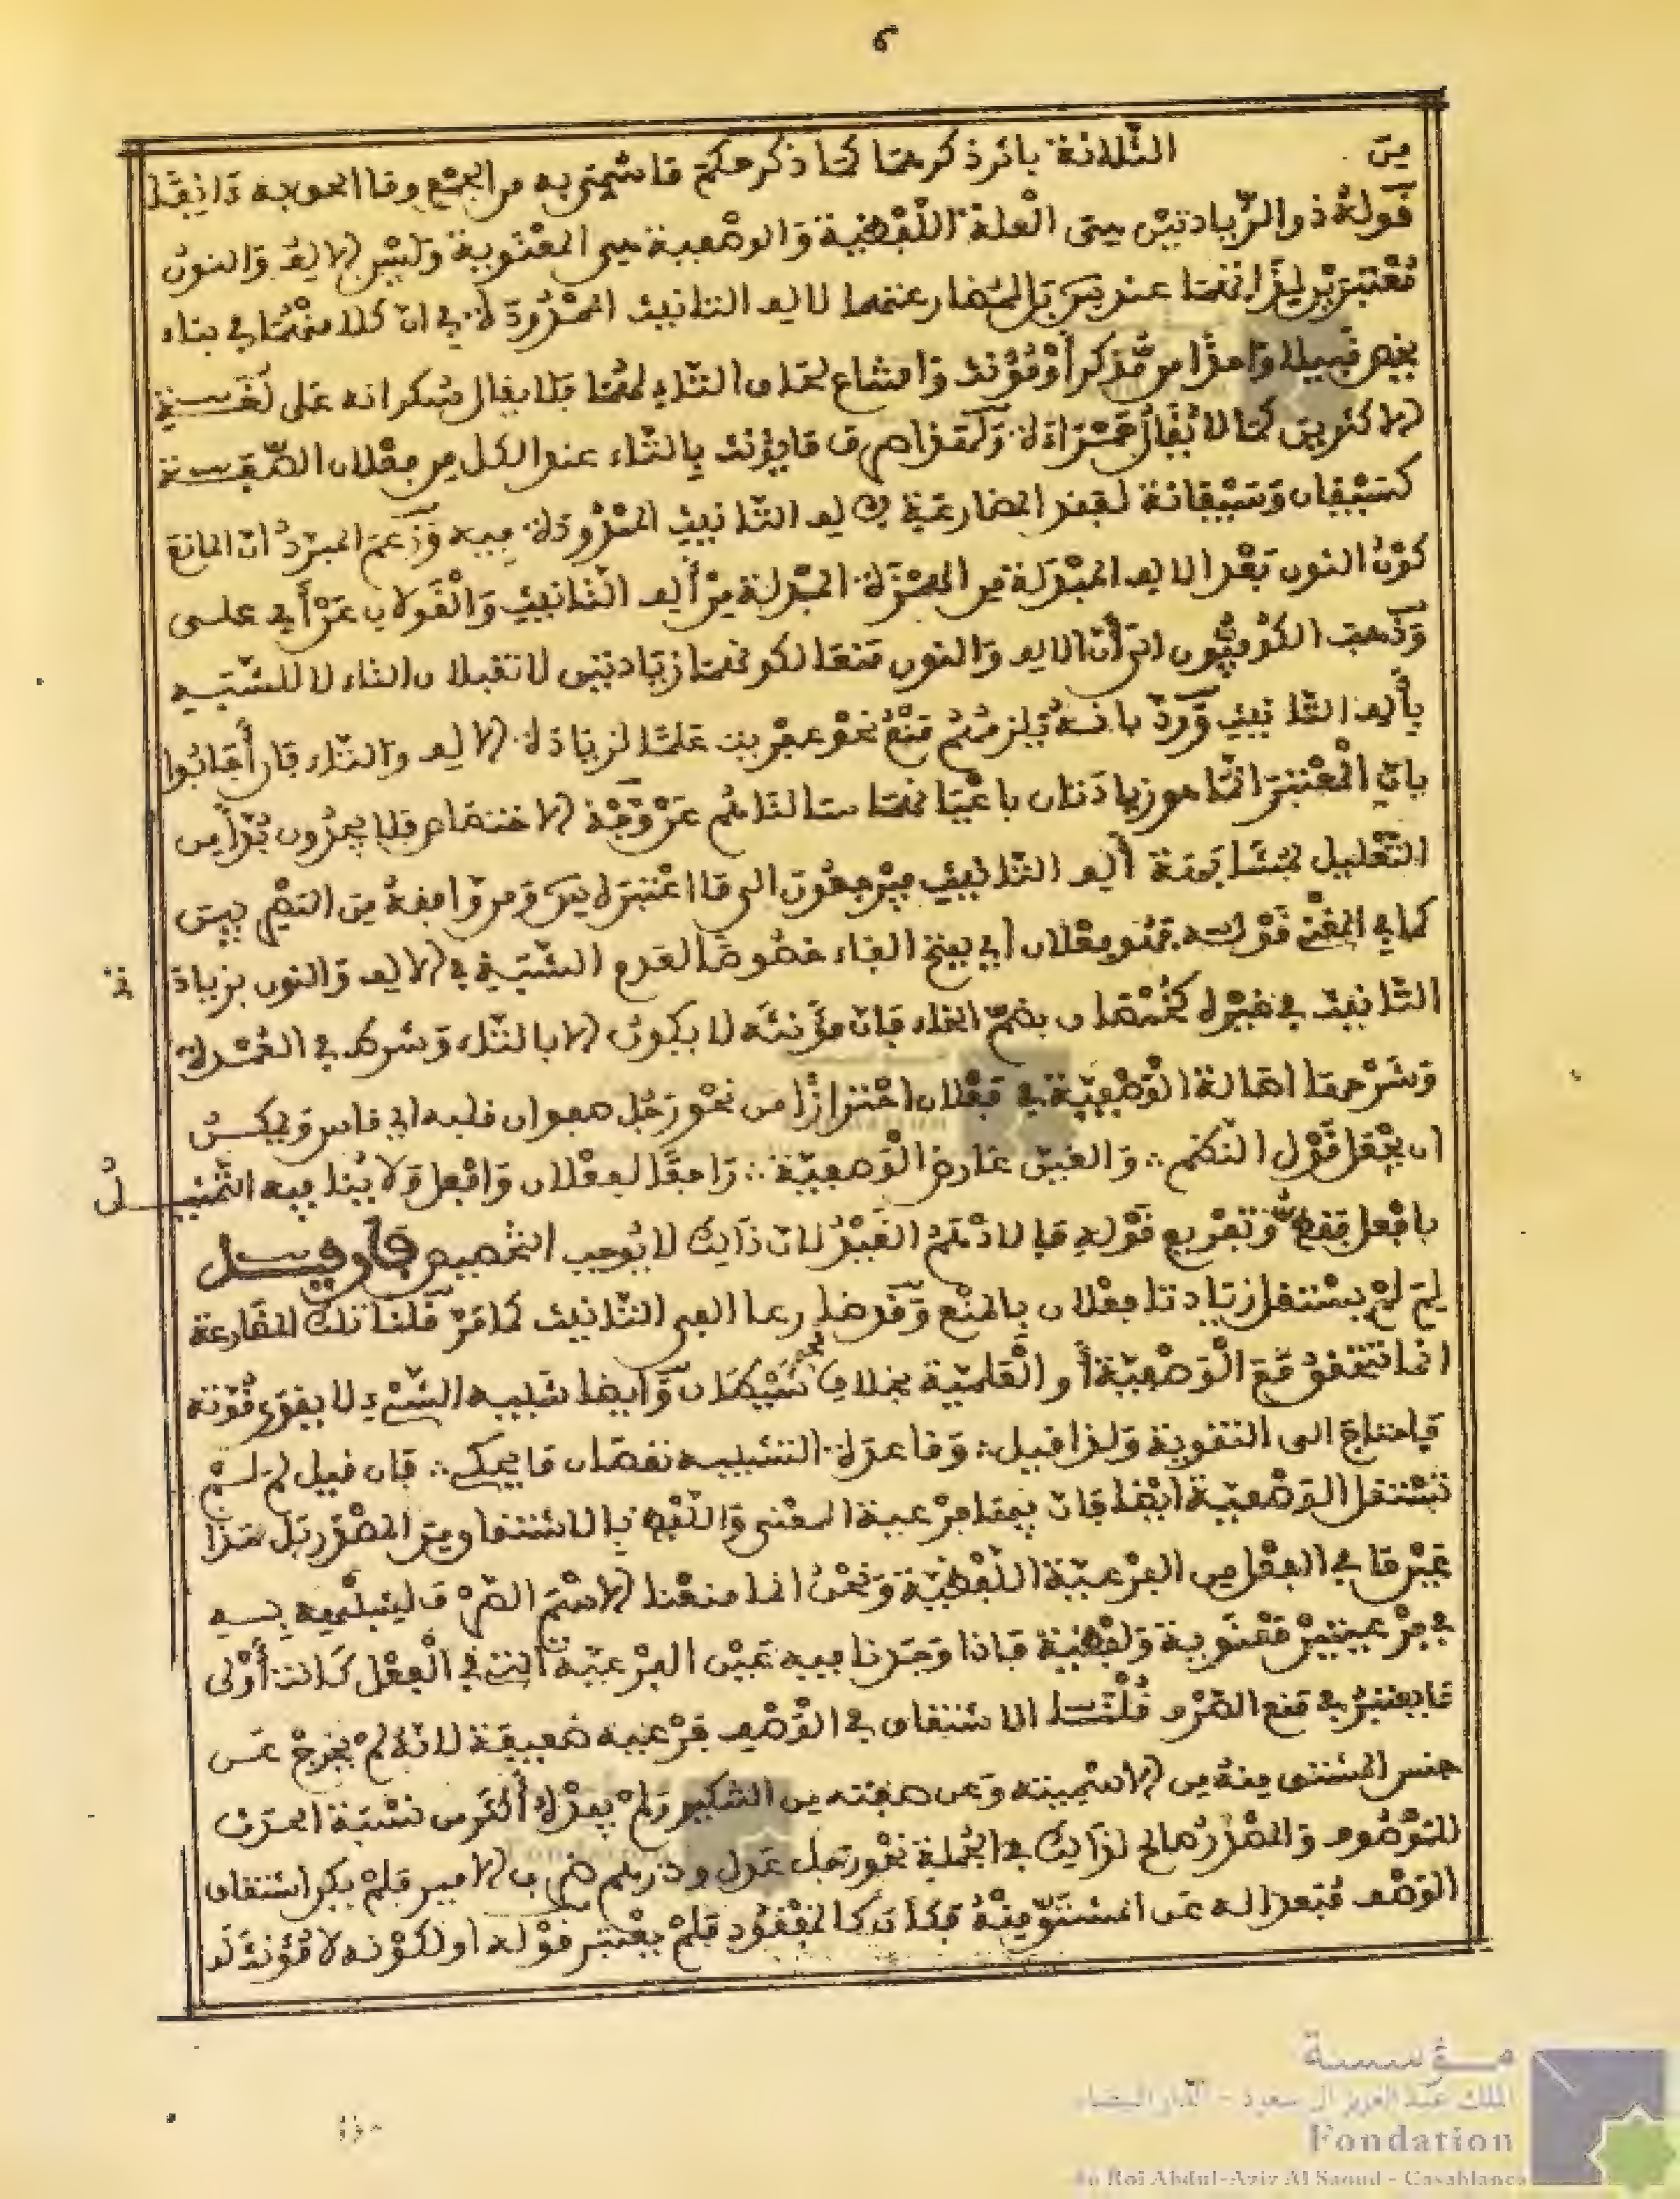 6
من الثلاثة بأثر ذكرهما كما ذكر حكم ما سمي به من الجمع وما الحق به
قوله ذو الزيادتين سيتى العلة اللفظية والوصفية هي المعنوية وليس الالف والنون
معتبرتين لذاتهما عند س بل لمضارعتهما لالف التانيث الممدودة في ان كلا منهما في بناء
يخص قبيلا واحدا من مذكر أو مؤنث وامتناع لحاق التاء لهما فلا يقال سكرانه على لغة
الاكثرين كما لا يقال حمراءة ولهذا صرف ما يؤنث بالتاء عند الكل من فعلان الصفة
كسيفان وسيفانة لفقد المضارعة لالف التانيث الممدودة فيه وزعم المبرد ان المانع
كون النون بعد الالف المبدلة من الهمزة المبدلة من ألف التانيث والقولان
وذهب الكوفيون الى أن الالف والنون منعا لكونهما زيادتين لا تقبلان التاء لا للشبه
بألف التانيث ورد بانه يلزمهم منع نحو عفريت علما لزيادة الالف والتاء فان أجابوا
بان المعتبر انما هو زيادتان باعيانهما سالناهم عن وجه الاختصاص فلا يجدون بدا من
التعليل لمشابهة ألف التانيث فيرجعون الى ما اعتبره س ومن وافقه من
كما في المغني قوله فعلان أي بفتح الفاء خصوصا لعدم الشبه في الالف والنون بزيادة
التانيث في غيره كخمصان بضم الخاء فان مؤنثه لا يكون الا بالتاء وشرط في العمدة
وشرحها اصالة الوصفية في فعلان احترازا من نحو رجل صفوان قلبه اي قاس ويمكن
ان يجعل قول النظم والغين عارض الوصفية راجعا لفعلان وافعل ولا ينافيه التمثيل
بافعل فقط وتفريع قوله فالادهم القيد لان ذلك لا يوجب التخصيص فان قيل
لم لم يستقل زيادتا فعلان بالمنع وقد ضارعا الفي التانيث كما مر قلنا تلك المضارعة
انما تتحقق مع الوصفية أو العلمية بخلاف نحو شيطان وأيضا شبيه الشيء لا يقوى قوته
فاحتاج الى التقوية ولذا قيل وما عدة التشبيه نقصان ما يحكى فان قيل لم لم
تستقل الوصفية ايضا فان فيها فرعية المعنى واللفظ بالاشتقاق من المصدر بل هذا
غير ما في الفعل من الفرعية اللفظية ونحن انما منعنا الاسم الصرف لشبهه به
في فرعيتين معنوية ولفظية فاذا وجدنا فيه عين الفرعية التي في الفعل كانت أولى
ما يعتبر في منع الصرف قلنا الاشتقاق في الوصف فرعيه ضعيفة لانه لم يخرج عن
جنس المشتق منه من الاسمية وعن صفته من التنكير ولم يفده أكثر من نسبة الحدث
للموصوف والمصدر صالح لذلك في الجملة نحو رجل عدل ودرهم ضرب الامير فلم يكن اشتقاق
الوصف مبعدا له عن المشتق منه فكان كالمفقود فلم يعتبر قوله او لكونه لا مؤنث له
مؤسسة
الملك عبد العزيز آل سعود - الدار البيضاء
Fondation
du Roi Abdul-Aziz Al Saoud - Casablanca